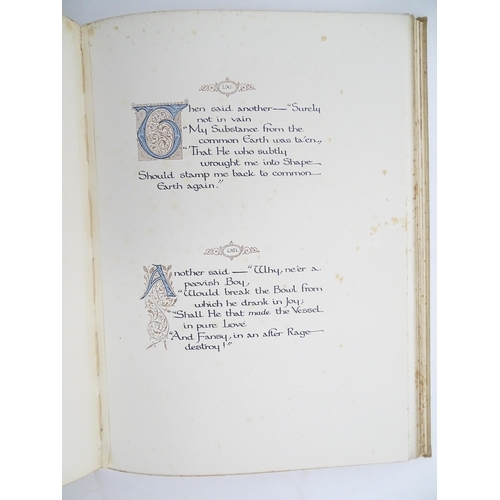 LXI
Then said another—"Surely
not in vain
"My Substance from the
common Earth was ta'en,
"That He who subtly
wrought me into Shape
Should stamp me back to common
Earth again."
LXII
Another said—"Why, ne'er a
peevish Boy,
"Would break the Bowl from
which he drank in Joy;
"Shall He that made the Vessel
in pure Love
"And Fansy, in an after Rage
destroy!"